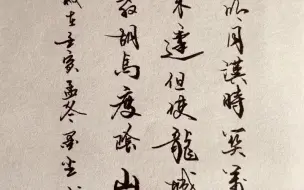 明月漢時関萬
未還但使龍城
教胡馬度陰山
在壬寅孟冬